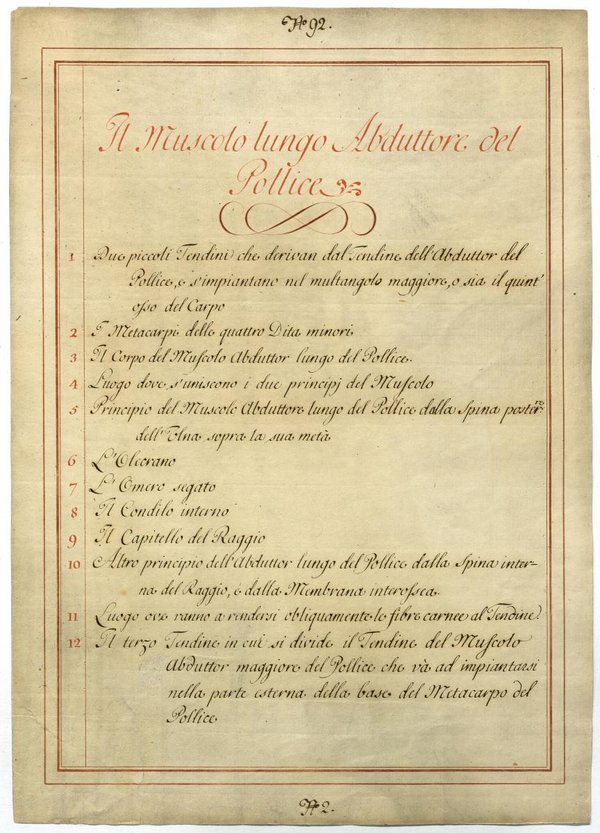 Nº 92.
Il Muscolo lungo Abduttore del
Pollice
1 Due piccoli Tendini che derivan dal Tendine dell'Abduttor del
Pollice, e s'impiantano nel multangolo maggiore, o sia il quint'
osso del Carpo
2 I Metacarpi delle quattro Dita minori
3 Il Corpo del Muscolo Abduttor lungo del Pollice
4 Luogo dove s'uniscono i due principj del Muscolo
5 Principio del Muscolo Abduttore lungo del Pollice dalla Spina poster.re
dell'Ulna sopra la sua metà
6 L'Olecrano
7 L'Omero segato
8 Il Condilo interno
9 Il Capitello del Raggio
10 Altro principio dell'Abduttor lungo del Pollice dalla Spina inter-
na del Raggio, e dalla Membrana interossea
11 Luogo ove vanno a rendersi obliquamente le fibre carnee al Tendine
12 Il terzo Tendine in cui si divide il Tendine del Muscolo
Abduttor maggiore del Pollice che và ad impiantarsi
nella parte esterna della base del Metacarpo del
Pollice
Nº 2.